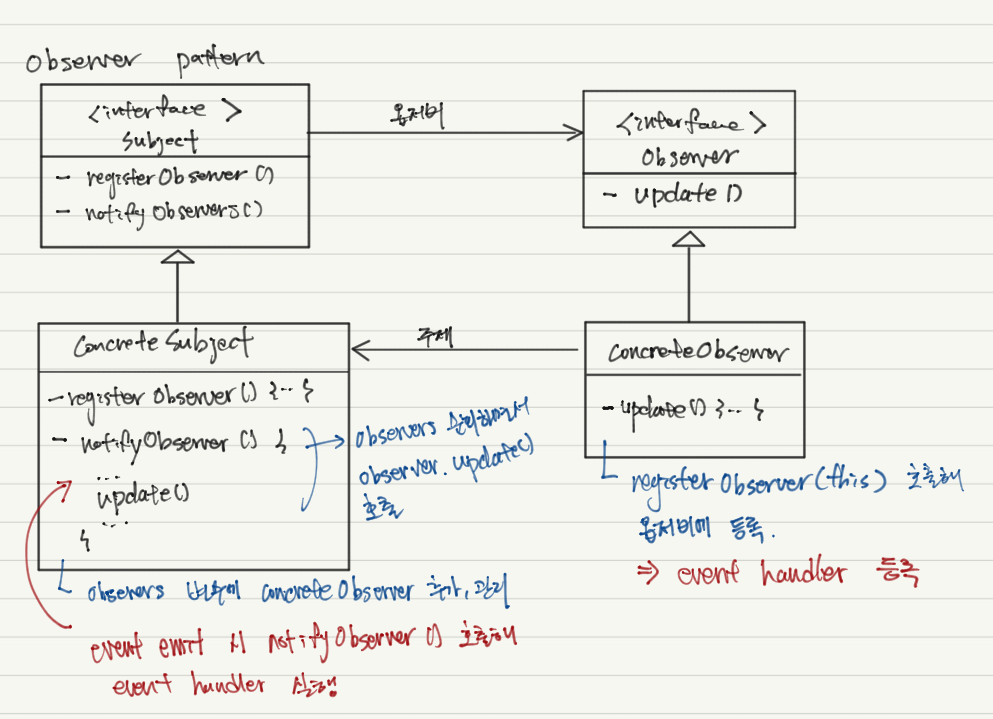 Observer pattern
<interface>
Subject
- registerObserver()
- notifyObservers()
옵저버
<interface>
Observer
- update()
ConcreteSubject
- registerObserver() {-- }
- notifyObserver() {
...
update()
...
}
주제
ConcreteObserver
- update() {-- }
observers 순회하면서
observer.update()
호출
registerObserver(this) 호출해
옵저버에 등록.
⇒ event handler 등록
observers 변수에 concreteObserver 추가, 관리
event emit 시 notifyObserver() 호출해
event handler 실행